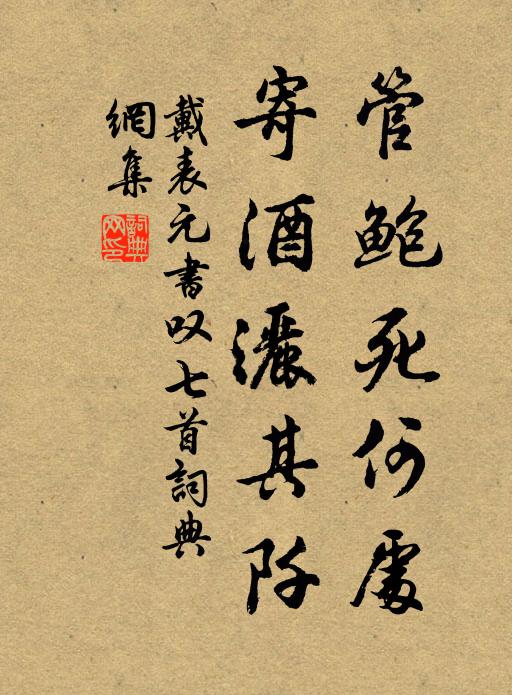 管鲍死何處
寄酒灑其阡
戴表元書叹七首詞典
網集
詞典網印